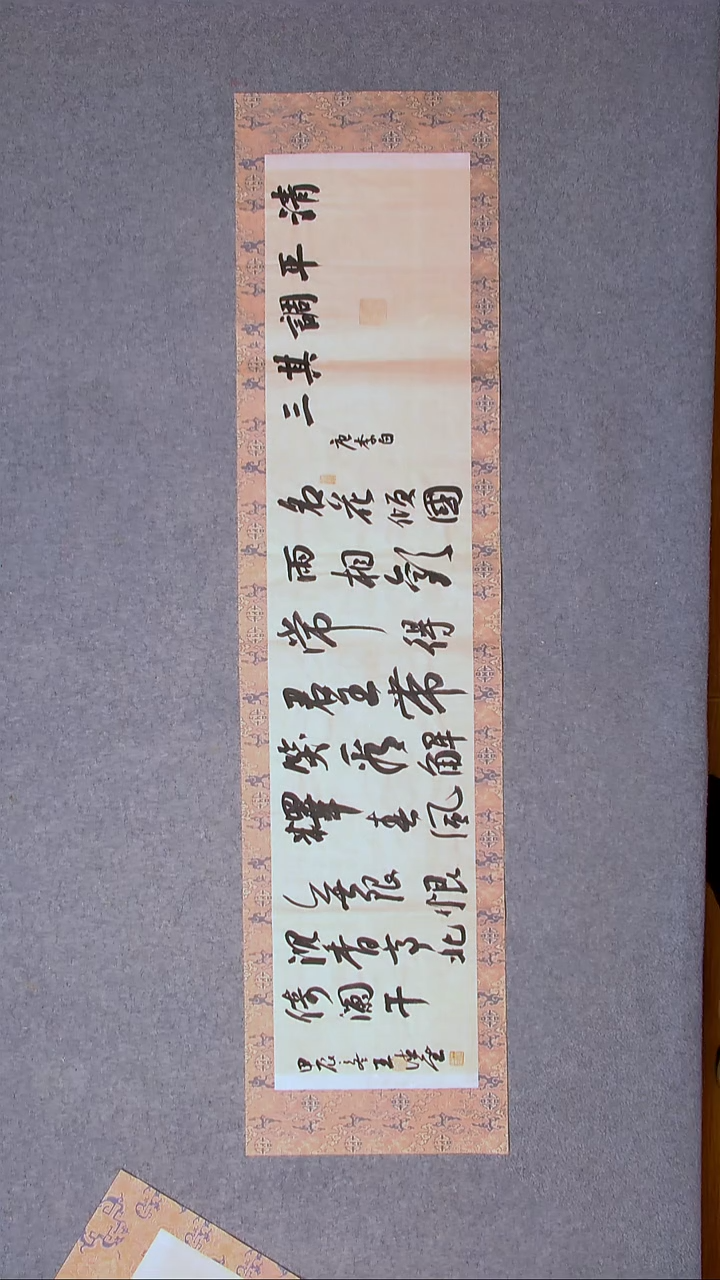 清平調其三
唐李白
名花傾國
兩相歡
常得
君王帶
笑看解
釋春風
無限恨
沉香亭北
倚闌干